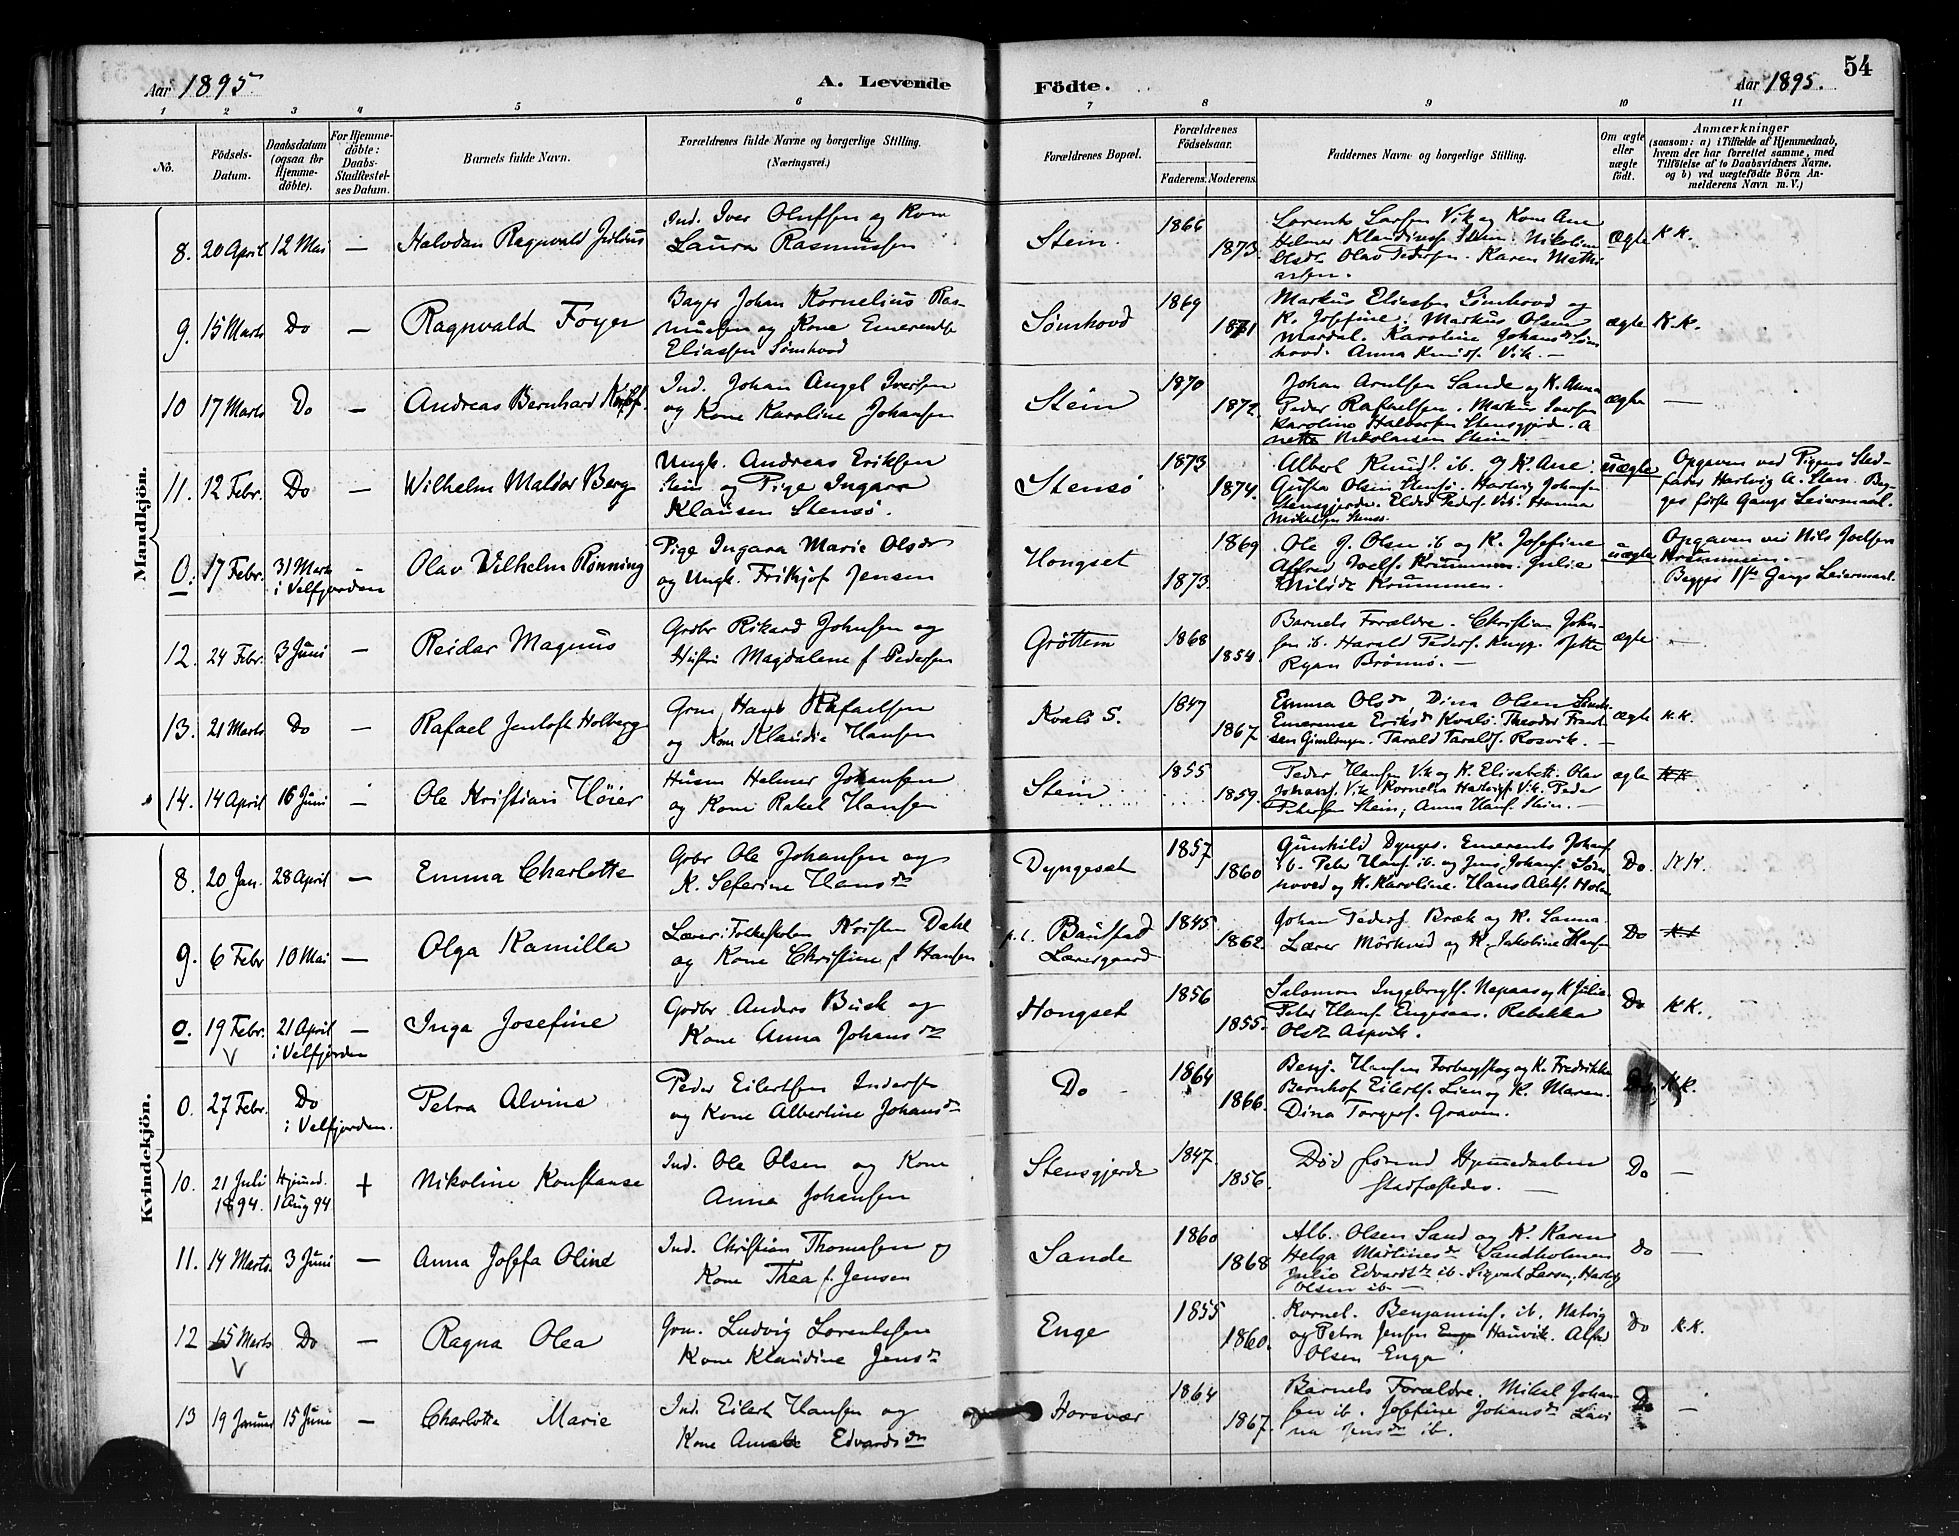 Aar 1895. A. Levende
Födte. Aar 1895. 54
1 2 3 4 5 6
7 8 9 10 11
No. Födsels-Datum. Daabsdatum (ogsaa for Hjemme-döbte). For Hjemme-döbte: Daabs-Stadfæstel-ses Datum. Barnets fulde Navn. Forældrenes fulde Navne og borgerlige Stilling. (Næringsvei.)
Forældrenes Bopæl. Forældrenes Födselsaar. Faderens. Moderens. Faddernes Navne og borgerlige Stilling. Om ægte eller uægte födt. Anmærkninger (saasom: a) i Tilfælde af Hjemmedaab, hvem der har forrettet samme, med Tilföielse af to Daabsvidners Navne, og b) ved uægtefödte Börn An-melderens Navn m. V.)
Mandkjön.
8. 20 April 12 Mai — Halvdan Ragnvald Julius
Ind. Iver Oluffsen og Kone
Laura Rasmussen
Stein. 1866 1873.
Lorents Larsen Vik og Kone Ane
Olav Pedersen. Karen Mathi
ægte K K.
9. 15 Marts Do — Ragnvald Foyer
Bager Johan Kornelius Ras-
mussen og Kone Emerentse
Eliassen Sömhovd
Sömhovd 1869 1871
Markus Eliassen Sömhovd og
K. Josefine. Markus Olsen
Mardal. Karoline Johansdr Söm
hovd. Anna Knuds. Vik. —
ægte K.K.
10 17 Marts Do — Andreas Bernhard
Ind. Johan Angel Iversen
og Kone Karoline Johansen
Stein 1870 1872.
Johan Arntsen Sande og K. Anna
Peder Rafaelsen. Markus Iversen
Karoline Halvorsen Stensgjerde. A
nette Nikolaisen Stein.
ægte —
11. 12 Febr. Do — Wilhelm Maldor Berg
Ungk. Andreas Eriksen
Stein og Pige Ingara
Klausen Stensö.
Stensö 1873 1874.
Albert Knuds. ib. og K. Ane.
Gusta Olsen Stensö. Hartvig Johansen
Stensgjerde. Elda Peders. Vik. Hanna
Nikolaisen Stensö
uægte Opgaven ved Pigens Sted-
fader Hartvig A. Sten. Beg-
ges förste Gangs Leiermaal.
0. 17 Febr. 31 Marts i Velfjorden — Olav Wilhelm Rönning
Pige Ingara Marie Olsdr
og Ungk. Frithjof Jensen
Hongset 1869 1873.
Ole J. Olsen ib og K. Josefine
Alfred Joels. Krummen. Julie
Krummen.
uægte Opgaven ved Nils Joelsen
Krummen. —
Begges 1ste Gangs Leiermaal.
12. 24 Febr. 3 Juni — Reidar Magnus
Grdbr Rikard Johnsen og
Hustru Magdalene f Pedersen
Gröttem 1868 1854.
Barnets Forældre. Christian John-
sen ib. Harald Peders. Jette
Ryan Brönnö. —
ægte —
13. 21 Marts Do — Rafael Jentoft Holberg
Grm Hans Rafaelsen
og Kone Klaudie Hansen
Kvalö S. 1847 1867.
Emma Olsdr, Dina Olsen
Emerense Eriksdr Kvalö. Theodor Frant
sen. Tarald Taralds. Rosvik. —
ægte K.K.
14. 14 April 16 Juni — Ole Kristian Höier
Husm Helmer Johansen
og Kone Rakel Hansen
Stein 1855 1859.
Peder Hansen Vik og K. Elisabeth. Olav
Johans. Vik Kornelia Hartvigs Vik. Peder
Petersen Stein; Anna Hans. Stein. —
ægte K K
Kvindekjön.
8. 20 Jan. 28 April — Emma Charlotte
Grbr Ole Johansen og
K. Seferine Hansdr
Dyngeset 1857 1860
Gunhild Dynges. Emerents Johans
ib. Peter Hans. ib. og Jens Johans. Söm
hoved og K. Karoline. Hans
Do. K K.
9. 6 Febr 10 Mai — Olga Kamilla
Lærer i Folkeskolen Kristen Dahl
og Kone Christine f Hansen
p.t. Baustad
Lærergaard 1845 1862.
Johan Peders. Bræk og K. Sanna.
Lærer Mörkved og K. Jakobine Hansen
Do K K
0. 19 Febr. 21 April i Velfjorden — Inga Josefine
Grdbr Anders Busk og
Kone Anna Johansdr
Hongset 1856 1855.
Salamon Ingebrigts. Nepaas og K Julie
Peter Hans. Engesaas. Rebekka
Olsdr Aspvik.
Do K K.
0. 27 Febr. Do i Velfjorden. Petra Alvine
Peder Eilertsen Indersen
og Kone Albertine Johansdr
Do 1864 1866.
Benj. Hansen Forbergskog og K. Fredrikke
Bernhof Eilerts. Lien og K. Maren.
Dina Torgers. Graven.
Do K.K.
10. 21 Juli 1894. Hjemmed. 1 Aug 94 + Nikoline Konstanse
Ind. Ole Olsen og Kone
Anna Johansen
Stensgjerde 1847. 1856.
Död förend Hjemmedaaben
stadfæstedes. —
Do —
11. 14 Marts. 3 Juni — Anna Josefa Oline
Ind. Christian Thomassen og
Kone Thea f. Jensen
Sande 1860 1868
Alb. Olsen Sand og K. Karen
Helga Martinesdr Sandholmen
Julie Edvardsdr ib. Sigvart Larsen, Hartvig
Olsen ib —
Do —
12 15 Marts Do — Ragna Olea
Grm. Ludvig Lorentsen
Kone Klaudine Jensdr
Enge 1855 1860.
Kornel. Benjamins. ib. Hatvig
og Petra Jensen Enge Hauvik. Alfred
Olsen Enge
Do K.K.
13 19 Januar 15 Juni — Charlotte Marie
Ind. Eilert Hansen og
Kone Amalie Edvardsdr
Horsvær 1864 1867.
Barnets Forældre. Mikal Johan-
sen ib. Josefine Johansdr Lavi
na Jensdr ib.
Do —